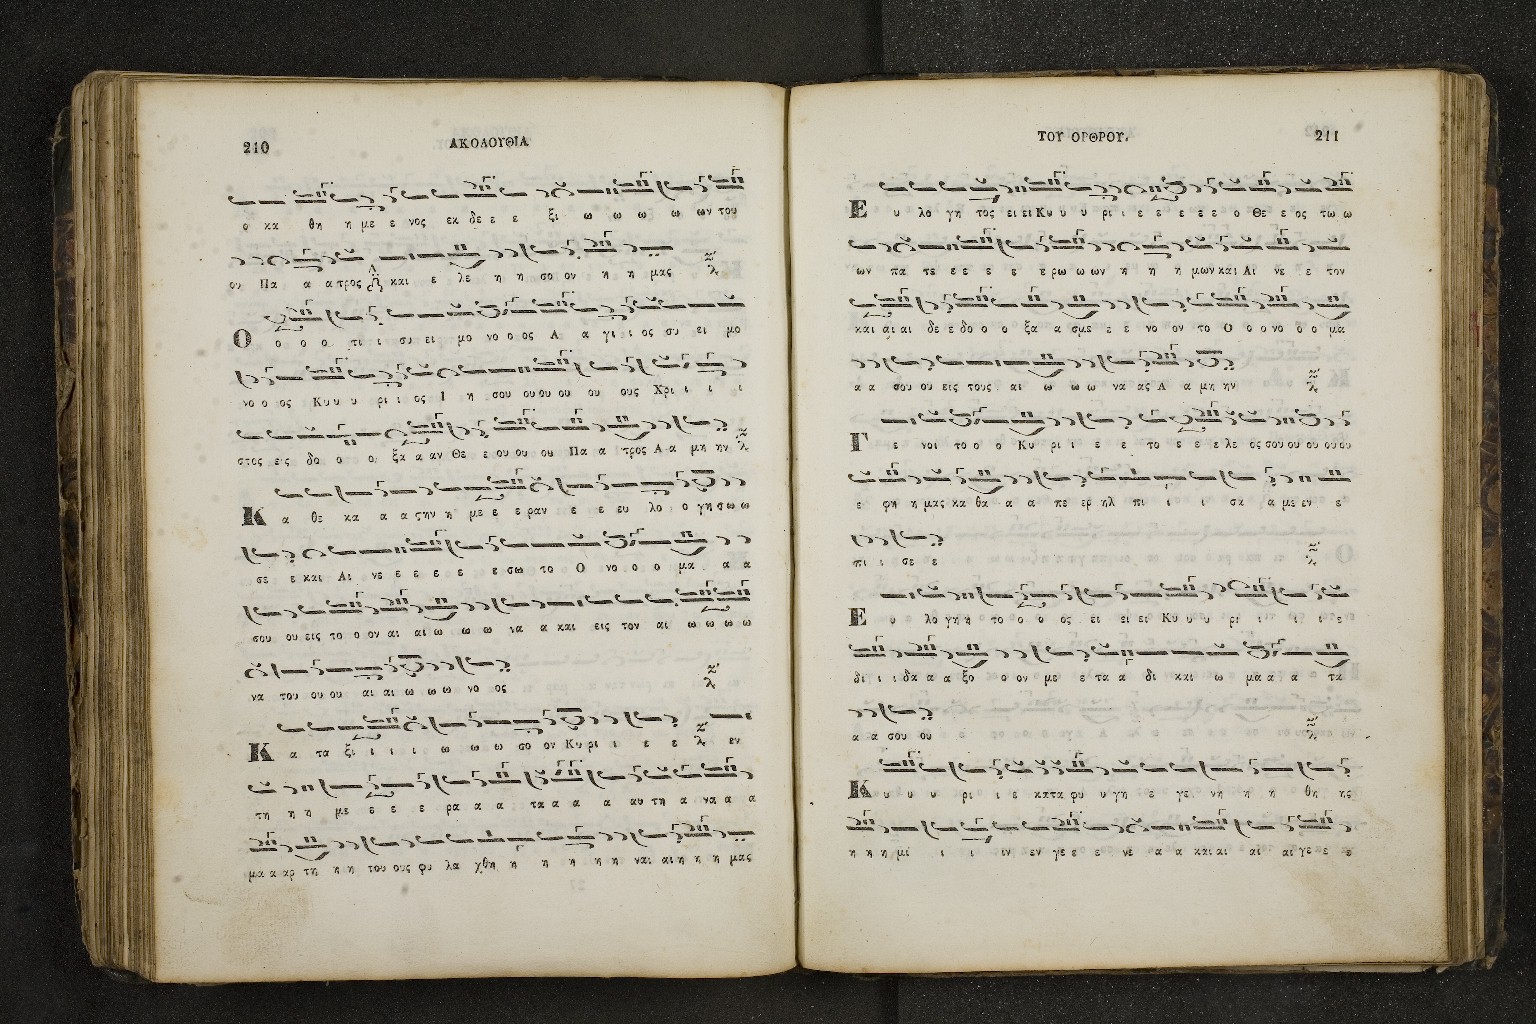 210 ΑΚΟΛΟΥΘΙΑ
ο κα θη η με ε νος εκ δε ε ε ξι ω ω ω ω ων του
ου Πα α α τρος και ε λε η η σο ον η η μας
Ο ο ο ο τι ι συ ει μο νο ο ος Α α γι ι ος συ ει μο
νο ο ος Κυ υ υ ρι ι ος Ι η σου ου ου ου ου ους Χρι ι ι ι
στος εις δο ο ο ξα α αν Θε ε ου ου ου Πα α τρος Α α μη ην
Κ α θε κα α α ςην η με ε ε ραν ε ε ευ λο ο γη σω ω
σε ε και Αι νε ε ε ε ε ε σω το Ο νο ο ο μα α α
σου ου εις το ο ον αι αι ω ω ω να α και εις τον αι ω ω ω ω
να του ου ου αι αι ω ω ω νο ος
Κ α τα ξι ι ι ι ω ω ω σο ον Κυ ρι ι ε ε εν
τη η η με ε ε ε ρα α α τα α α α αυ τη α να α α
μα α αρ τη η η του ους φυ λα χθη η η η η η ναι αι η η η μας
ΤΟΥ ΟΡΘΡΟΥ. 211
Ε υ λο γη τος ει ει Κυ υ υ ρι ι ε ε ε ε ε ο Θε ε ος τω ω
ων πα τε ε ε ε ε ε ρω ω ων η η η μων και Αι νε ε τον
και αι αι δε ε δο ο ο ξα α σμε ε ε νο ον το Ο ο ο νο ο ο μα
α α σου ου εις τους αι ω ω ω να ας Α α μη ην
Γ ε νοι το ο ο Κυ ρι ι ε ε το ε ε ε λε ος σου ου ου ου ου
ε φη η μας κα θα α α πε ερ ηλ πι ι ι σα α με εν ε
πι ι σε ε
Ε υ λο γη η το ο ο ος ει ει ει Κυ υ υ ρι ι ι ι ε
δι ι ι δα α α ξο ο ον με ε τα α δι και ω μα α α τα
α α σου ου
Κ υ υ υ ρι ι ε κατα φυ υ γη ε γε νη η η θη ης
η η η μι ι ι ιν εν γε ε ε ε νε α α και αι αι αι γε ε ε